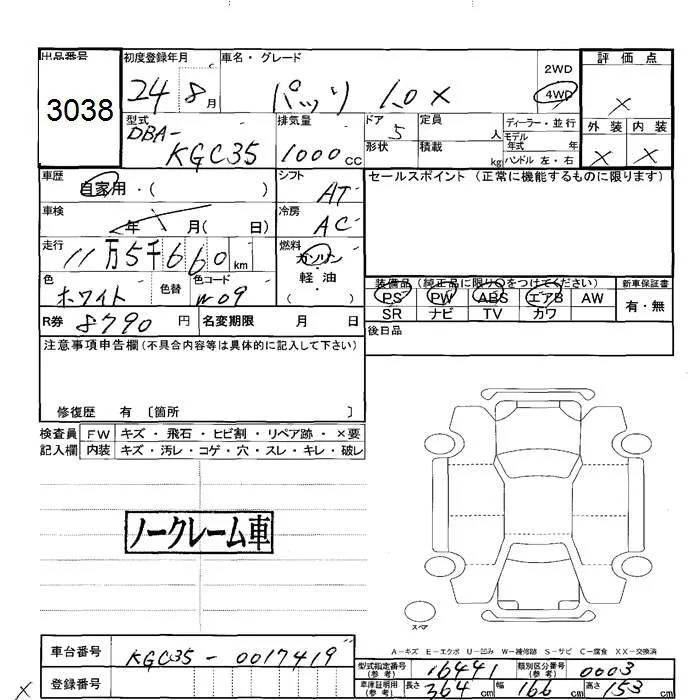 出品番号 初度登録年月 車名・グレード 2WD 評価点
3038 24 8月 パッソ 1.0X 4WD ×
型式 排気量 ドア 定員 人 ディーラー・並行 外装 内装
DBA-KGC35 1000cc 5 形状 積載 kg モデル年式 年 ハンドル 左・右 × ×
車歴 自家用・( ) シフト AT セールスポイント (正常に機能するものに限ります)
車検 年 月( 日) 冷房 AC
走行 11万5千660km 燃料 ガソリン・軽油 ( )
色 ホワイト 色替 色コード W09
装備品 (純正品に限り○をつけてください) 新車保証書
PS PW ABS エアB AW 有・無
SR ナビ TV カワ
R券 8790円 名変期限 月 日 後日品
注意事項申告欄 (不具合内容等は具体的に記入して下さい)
修復歴 有 〔箇所 〕
検査員 FW キズ・飛石・ヒビ割・リペア跡・×要
記入欄 内装 キズ・汚レ・コゲ・穴・スレ・キレ・破レ
ノークレーム車
スペア
A-キズ E-エクボ U-凹み W-補修跡 S-サビ C-腐食 XX-交換済
車台番号 KGC35-0017419
型式指定番号(参考) 16441 類別区分番号(参考) 0003
登録番号
車庫証明用(参考) 長さ 364cm 幅 166cm 高さ 153cm
×